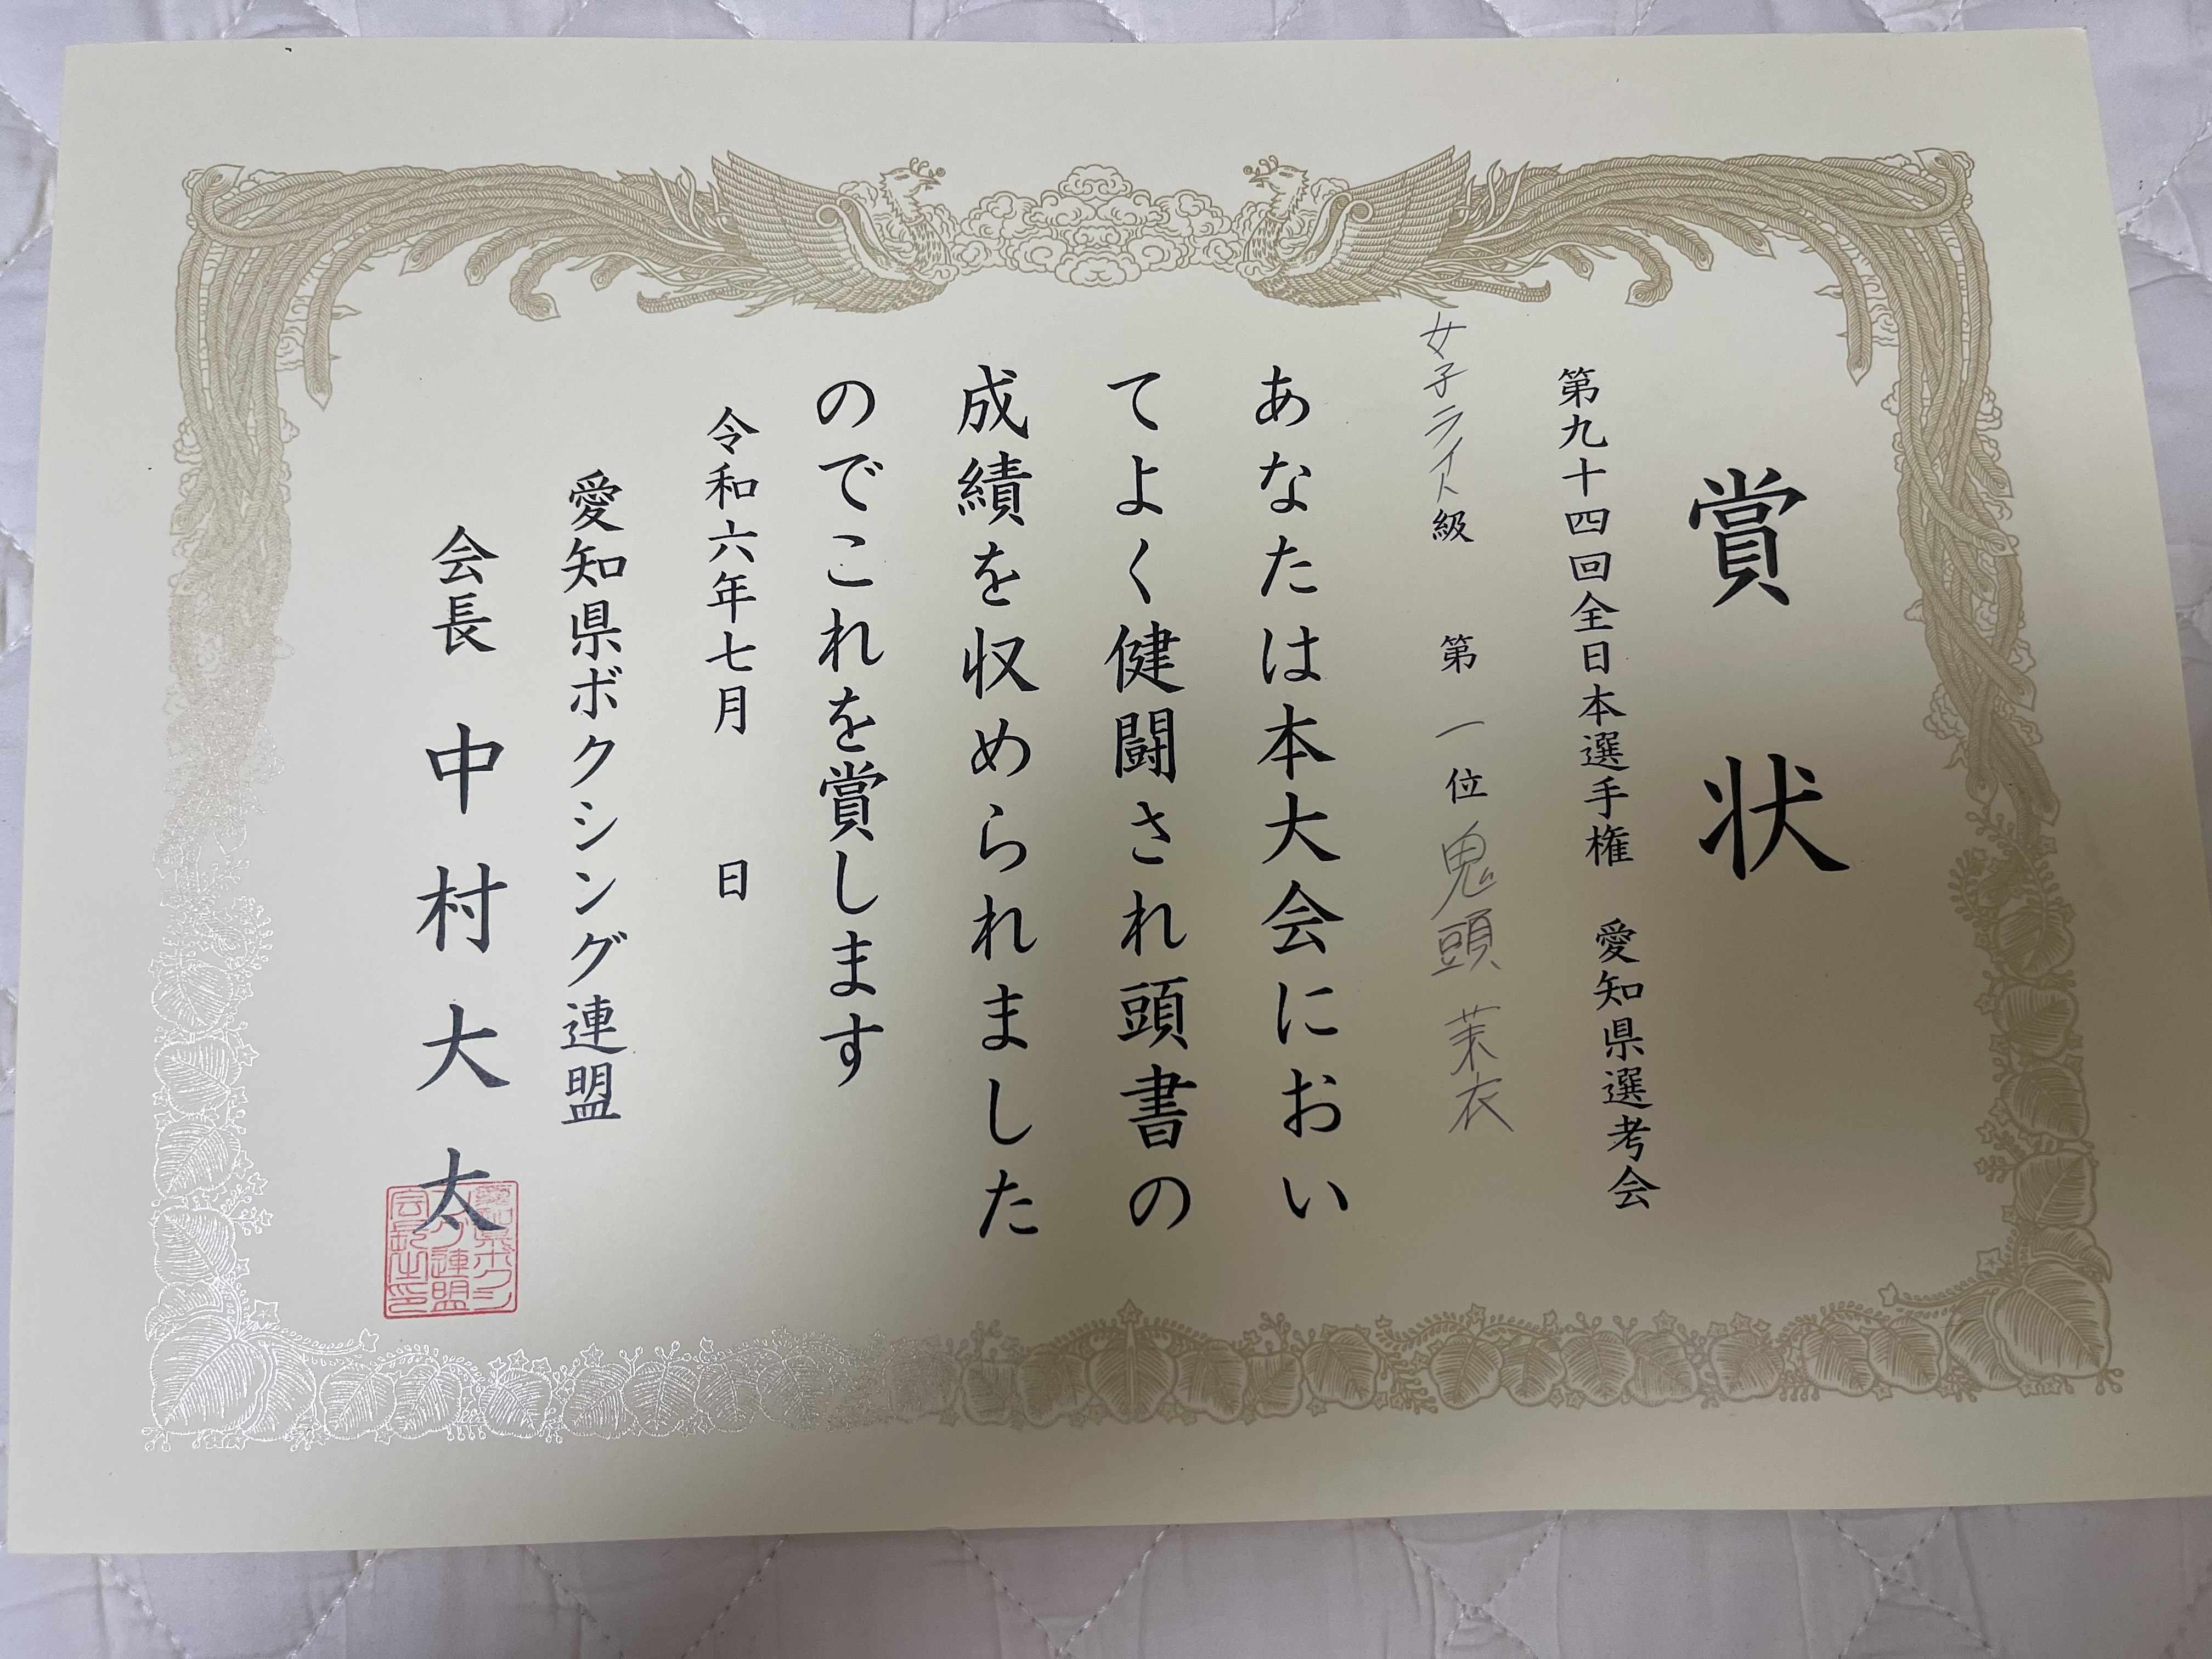 賞状
第九十四回全日本選手権 愛知県選考会
女子ライト級 第一位 鬼頭 茉衣
あなたは本大会におい
てよく健闘され頭書の
成績を収められました
のでこれを賞します
令和六年七月 日
愛知県ボクシング連盟
会長 中村大太